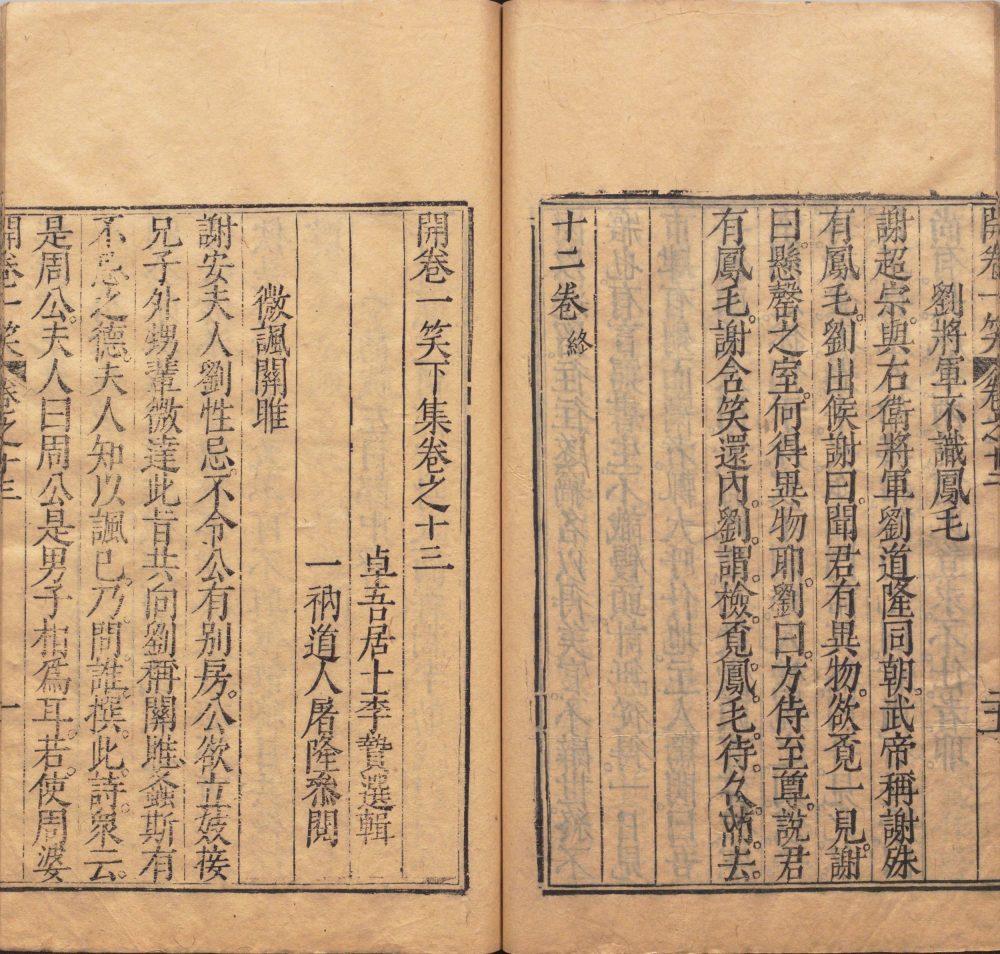 劉將軍不識鳳毛
謝超宗。與右衛將軍劉道隆同朝。武帝稱謝殊
有鳳毛。劉出候謝曰。聞君有異物。欲覓一見。謝
曰。懸罄之室。何得異物耶。劉曰。方侍至尊。說君
有鳳毛。謝含笑還內。劉謂檢覓鳳毛。待久
十二卷終
開卷一笑下集卷之十三
卓吾居士李贄選輯
一衲道人屠隆參閱
微諷關雎
謝安夫人劉性忌。不令公有別房。公欲立妓妾
兄子外甥輩微達此旨共向劉稱關雎螽斯有
不忌之德。夫人知以諷己。乃問誰撰此詩。衆云。
是周公。夫人曰周公是男子相爲耳。若使周婆
開卷一笑
卷之十三
一